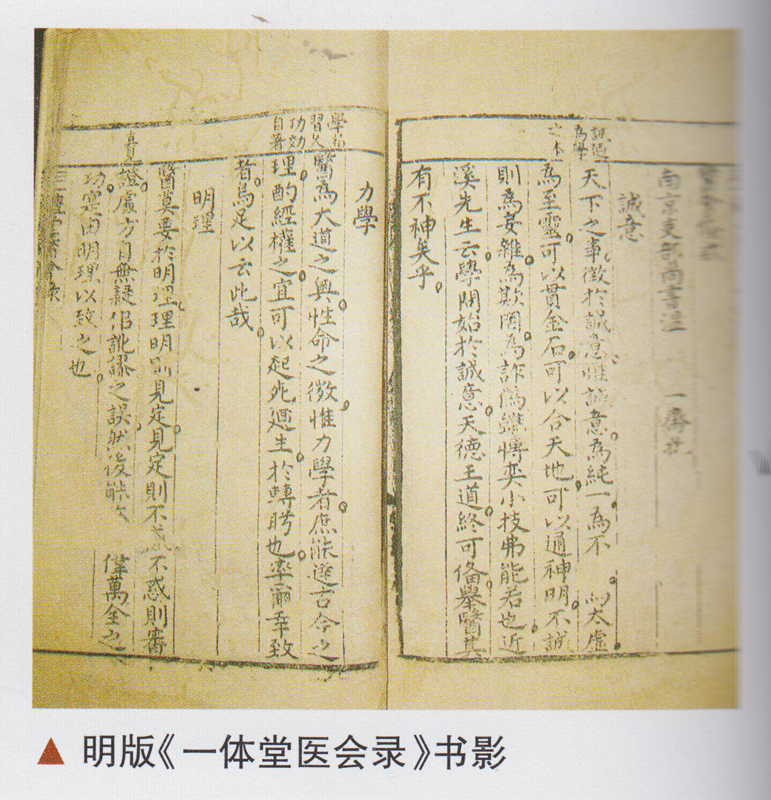 南京吏部尚書溫 一齋
誠意
之本
為學
天下之事徵於誠意惟誠意為純一為不 太虛
為至靈可以貫金石可以合天地可以通神明不誠
則為妄雜為欺罔為詐偽雖慱奕小技弗能若也近
溪先生云學問始於誠意天德王道終可備舉醫其
有不神矣乎
力學
習久
功効
自著
醫為大道之奧性命之微惟力學者庶能進古今之
理酌經權之宜可以起死迴生於轉盻也率爾幸致
者烏足以云此哉
明理
醫莫要於明理理明則見定見定則不惑不惑則審
證處方自無疑佀訛謬之誤然後能 偉萬全之
功寔由明理以致之也
▲ 明版《一体堂医会录》书影